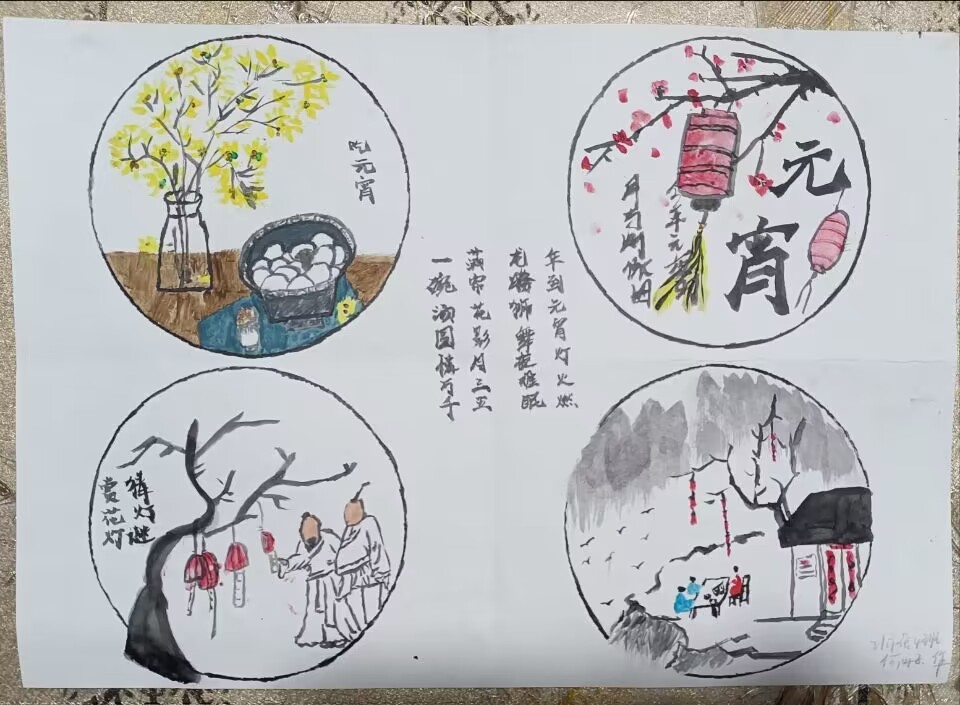 吃元宵
元宵
年到元宵灯火燃
龙腾狮舞夜难眠
花影月三五
一碗汤圆情万千
猜灯谜
赏花灯